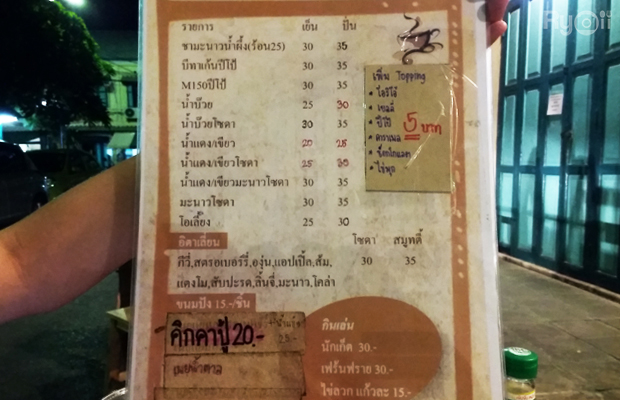 Ryoii
รายการ เย็น ปั่น
ชามะนาวน้ำผึ้ง(ร้อน25) 30 35
บีทาเก้นปีโป้ 30 35
M150ปีโป้ 30 35
น้ำบ๊วย 25 30
น้ำบ๊วยโซดา 30 35
น้ำแดง/เขียว 20 25
น้ำแดง/เขียวโซดา 25 30
น้ำแดง/เขียวมะนาวโซดา 30 35
มะนาวโซดา 30 35
โอเลี้ยง 25 30
เพิ่ม Topping
โอริโอ้
เยลลี่
ปีโป้
คาราเมล
ช็อกโกแลต
ไข่มุก
5 บาท
อิตาเลี่ยน โซดา สมูทตี้
กีวี่,สตรอเบอร์รี่,องุ่น,แอปเปิ้ล,ส้ม, 30 35
แตงโม,สับปะรด,ลิ้นจี่,มะนาว,โคล่า
ขนมปัง 15.-/ชิ้น
คิกคาปู้ 20.-
25.-
กินเล่น
นักเก็ต 30.-
เฟร้นฟราย 30.-
ไข่ลวก แก้วละ 15.-